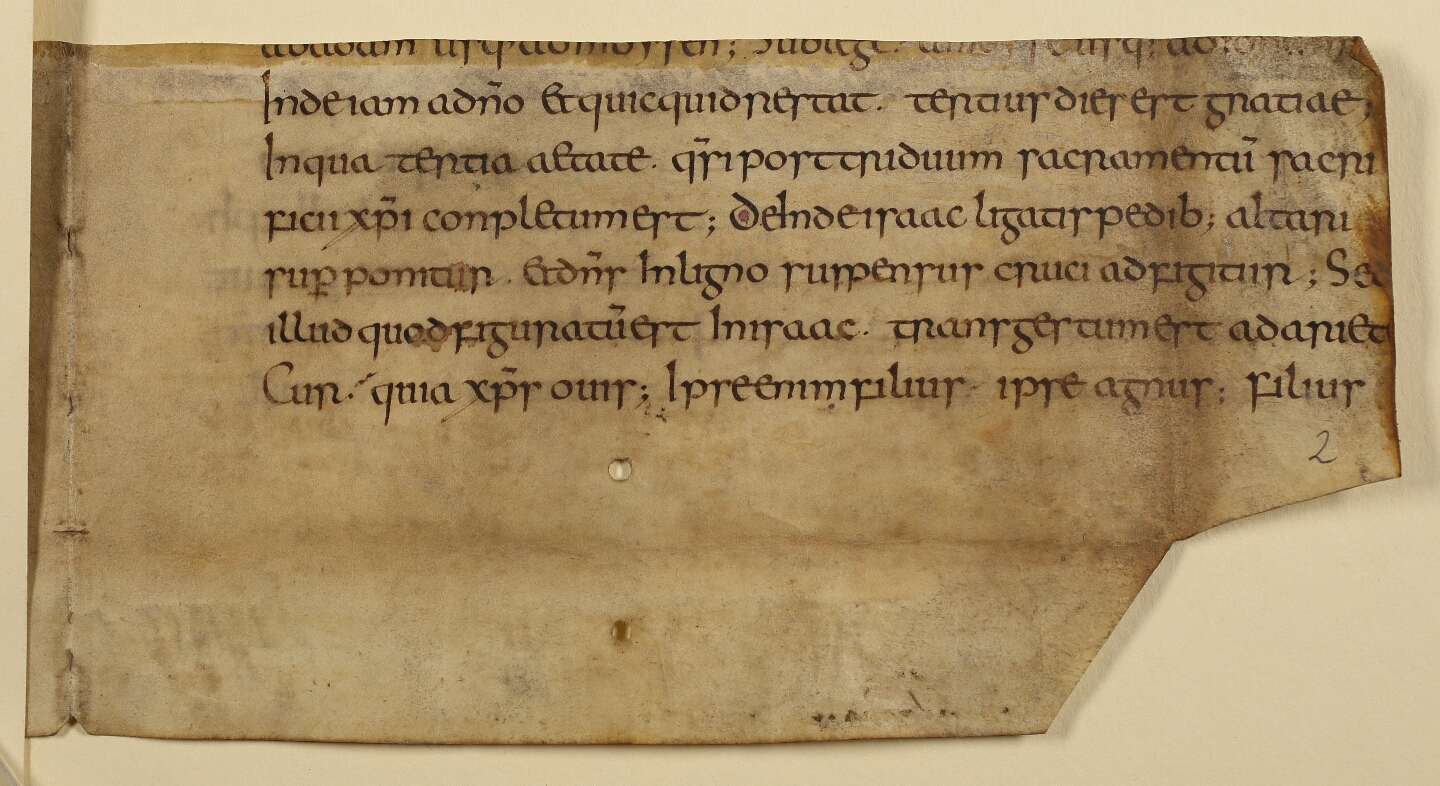 abadam usq; admoysen; Sublege.
Inde iam adn̄o Et quicquid restat. tertius dies est gratiae;
In qua tertia aetate. qs̄i post triduum sacramentū sacri
ficii xp̄i conpletum est; De Inde isaac ligatis pedib; altari
sup̱ponitur. Et dn̄s In ligno suspensus cruci adfigitur; Sed
illud quod figuratū est In isaac. transgestum est ad ariet
Cur. quia xp̄s ouis; Ipse enim filius. ipse agnus; filius
2